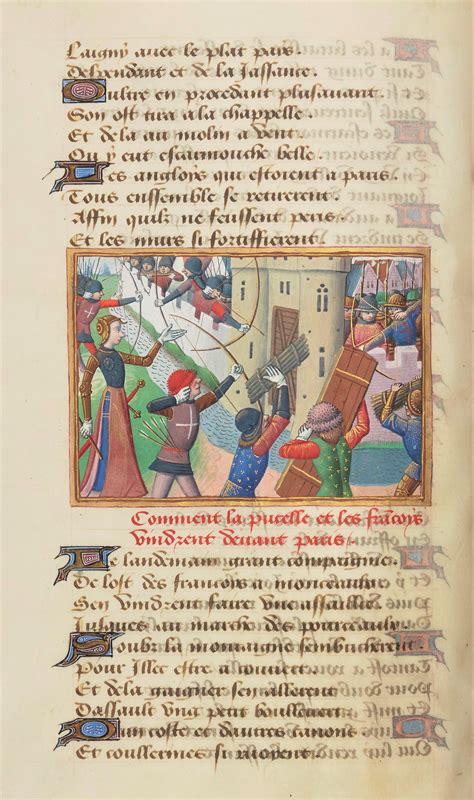 Laigny avec le plat pais.
Despendent et de la Jassance.
Oultre en procedant plus avant.
Son ost tira a la chappelle.
Et de la au molin a vent.
Ou y eut escarmouche belle.
Les angloys qui estoient a paris.
Tous enssemble se retirerent.
Affin quilz ne feussent peris.
Et les murs si fortiffierent.
Comment la pucelle et les francoys
vindrent devant paris.
Le landemain grant compaignie.
De lost des francois a montmartre
Sen vindrent faire une assaillie.
Jusques au marche des pourceaulx.
Soubz la montaigne sembucherent.
Pour Illec estre a couvert.
Et de la gaigner sen allerent
Dassault ung petit boullevert.
Dun coste et dautres canons
Et coullevrines si ruoyent.